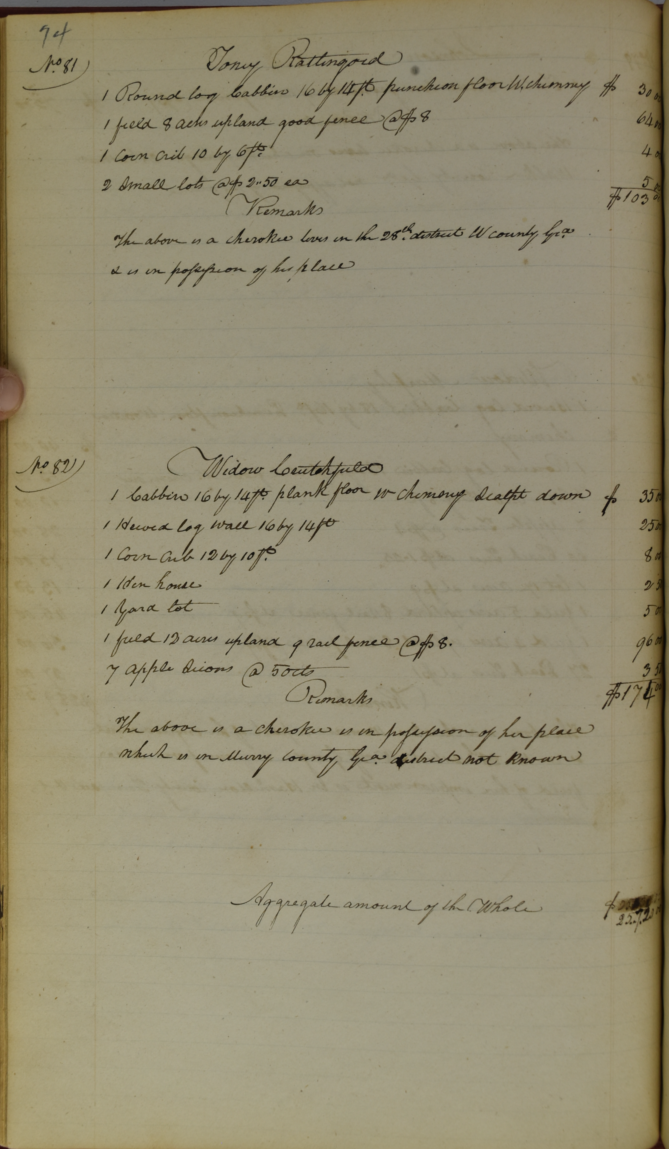 94
No. 81) Toney Rattingord
1 Round log Cabbin 16 by 14 ft. puncheon floor W. chimney $ 30 00
1 field 8 acres upland good fence @ $8 64 00
1 Corn Crib 10 by 6 ft. 4 00
2 Small lots @ $2-50 ea 5 00
$103
Remarks
The above is a cherokee lives in the 28th. district W county Gea.
& is in possession of his place
No. 82) Widow Crutchfield
1 Cabbin 16 by 14 ft plank floor W chimney Scalpt down $ 35 00
1 Hewed log wall 16 by 14 ft 25 00
1 Corn Crib 12 by 10 ft. 8 00
1 Hen house 2
1 Yard lot 5 0
1 field 12 acres upland 9 rail fence @ $8. 96 00
7 apple Scions @ 50 cts 3 50
$174
Remarks
The above is a cherokee is in possession of her place
which is in Murry County Gea. district not Known
Aggregate amount of the Whole $